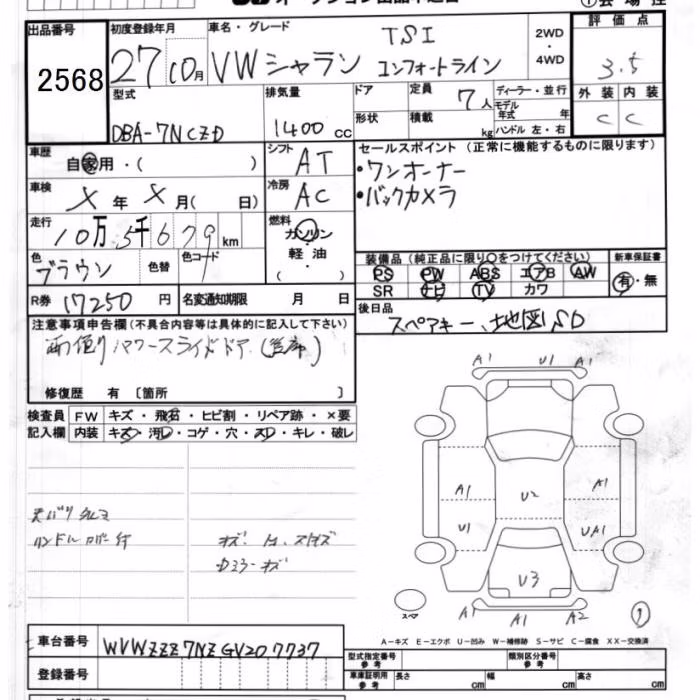 出品番号 初度登録年月 車名・グレード 評価点
2568 27 10月 VW シャラン TSI コンフォートライン 2WD・4WD 3.5
型式 排気量 ドア 定員 7人 ディーラー・並行 外装 内装
DBA-7NCZD 1400 cc 形状 積載 kg モデル年式 年 ハンドル 左・右 C C
車歴 自家用・( ) シフト AT セールスポイント (正常に機能するものに限ります)
・ワンオーナー
車検 X年X月( 日) 冷房 AC ・バックカメラ
走行 10万5千679km 燃料 ガソリン・軽油( )
色 ブラウン 色替 色コード 装備品 (純正品に限り○をつけてください) 新車保証書
PS PW ABS エアB AW 有・無
R券 17250円 名変通知期限 月 日 SR ナビ TV カワ
後日品 スペアキー、地図SD
注意事項申告欄(不具合内容等は具体的に記入して下さい)
パワースライドドア
修復歴 有 〔箇所 〕
A1 U1 A1
検査員 FW キズ・飛石・ヒビ割・リペア跡・×要
記入欄 内装 キズ・汚レ・コゲ・穴・スレ・キレ・破レ
A1 U2 A1
U1 UA1
ハンドルカバー付
キズ
U3
スペア A1 A1 A2
車台番号 WVWZZZ7NZGV207737 A−キズ E−エクボ U−凹み W−補修跡 S−サビ C−腐食 XX−交換済
型式指定番号 参考 類別区分番号 参考
登録番号 車庫証明用 参考 長さ cm 幅 cm 高さ cm